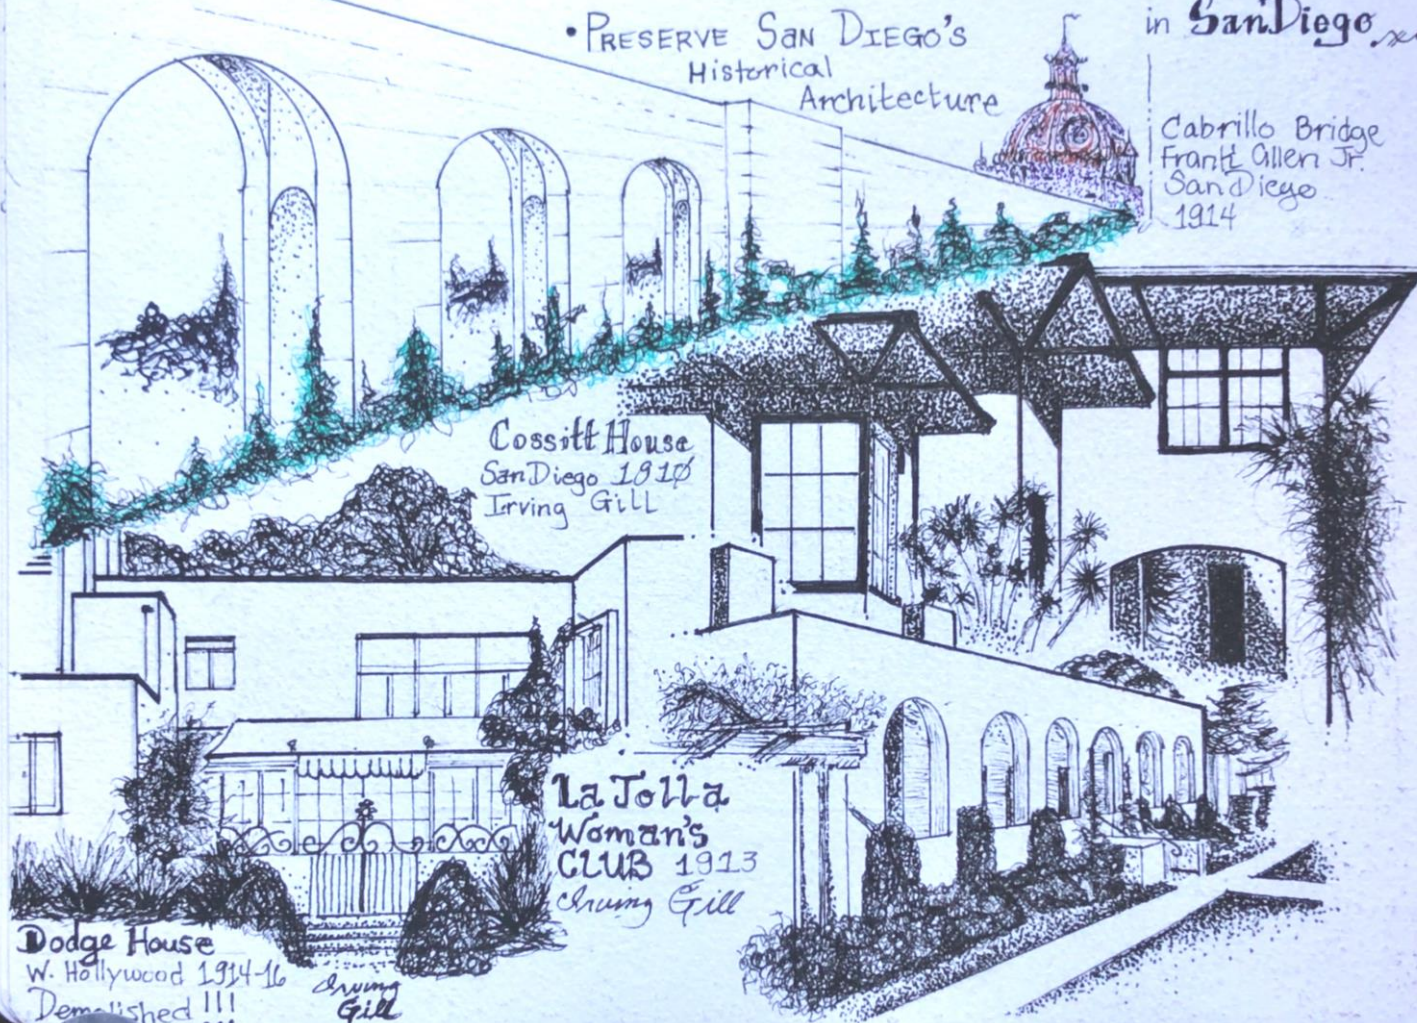 • PRESERVE SAN DIEGO'S
Historical
Architecture
in San Diego
Cabrillo Bridge
Frank Allen Jr.
San Diego
1914
Cossitt House
San Diego 1910
Irving Gill
La Jolla
Woman's
CLUB 1913
Irving Gill
Dodge House
W. Hollywood 1914-16
Demolished !!!
Irving
Gill